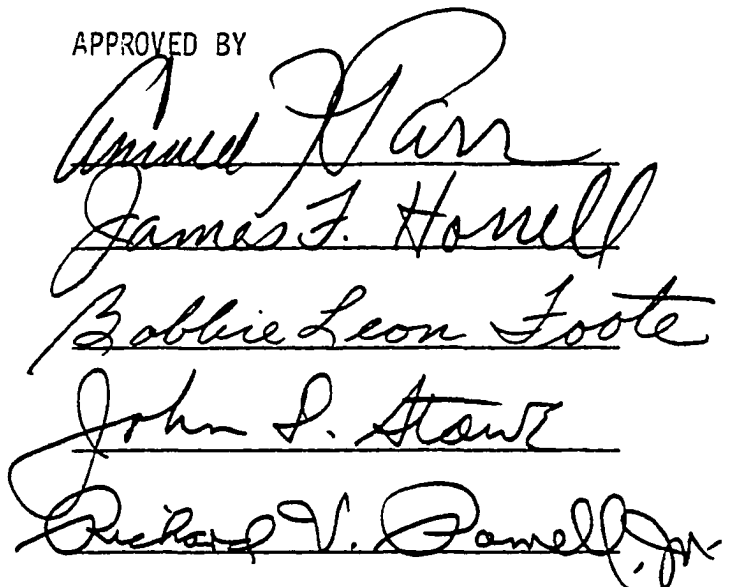 APPROVED BY
Arnold J. Parr
James F. Horrell
Bobbie Leon Foote
John D. Stowe
Richard V. Powell, Jr.